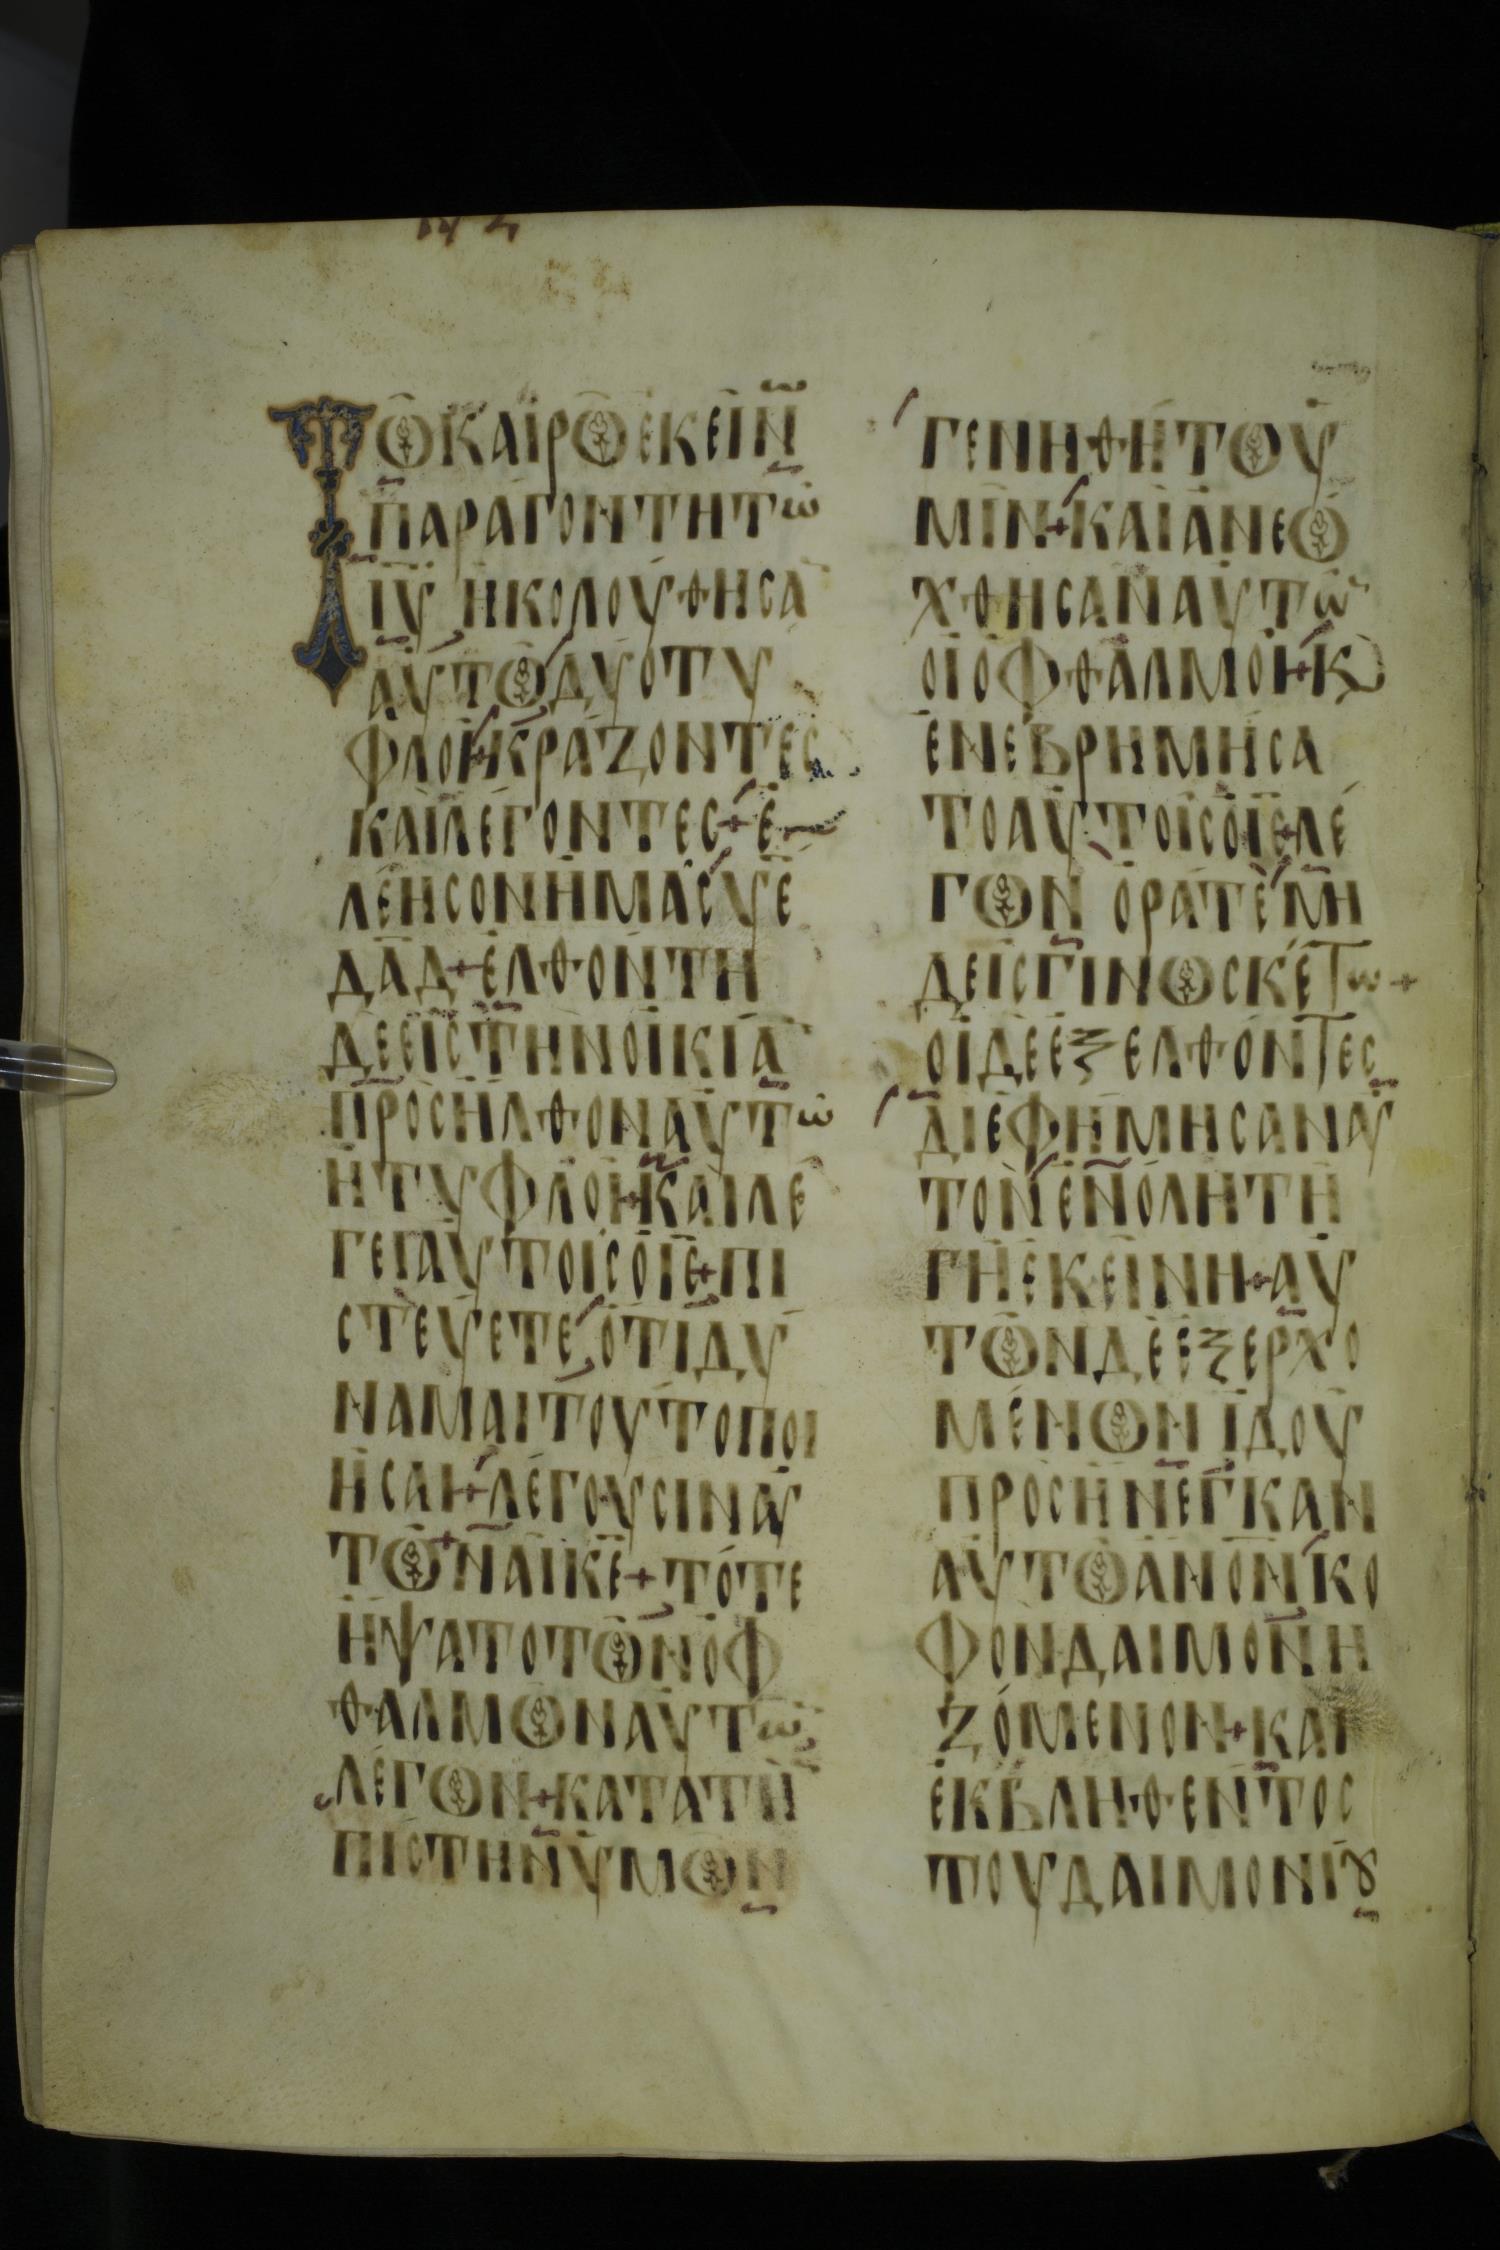 ΤΩΚΑΙΡΩΕΚΕΙΝω
ΠΑΡΑΓΟΝΤΗΤω
ΙΥ ΗΚΟΛΟΥΘΗСΑ
ΑΥΤΩΔΥΟΤΥ
ΦΛΟΙ+ΚΡΑΖΟΝΤΕС
ΚΑΙΛΕΓΟΝΤΕС+Ε
ΛΕΗСΟΝΗΜΑСΥΕ
ΔΑΔ+ΕΛΘΟΝΤΗ
ΔΕΕΙСΤΗΝΟΙΚΙΑ
ΠΡΟСΗΛΘΟΝΑΥΤω
ΗΤΥΦΛΟΙ+ΚΑΙΛΕ
ΓΕΙΑΥΤΟΙСΟΙС+ΠΙ
СΤΕΥΕΤΕ ΟΤΙΔΥ
ΝΑΜΑΙΤΟΥΤΟΠΟΙ
ΗСΑΙ+ΛΕΓΟΥСΙΝΑΥ
ΤΩ+ΝΑΙΚΕ+ΤΟΤΕ
ΗΨΑΤΟΤΩΝΟΦ
ΘΑΛΜΩΝΑΥΤω
ΛΕΓΩΝ+ΚΑΤΑΤΗ
ΠΙСΤΗΝΥΜΩΝ
ΓΕΝΗΘΗΤΩΥ
ΜΙΝ+ΚΑΙΑΝΕΩ
ΧΘΗСΑΝΑΥΤω
ΟΙΟΦΘΑΛΜΟΙ+Κ
ΕΝΕΒΡΗΜΗСΑ
ΤΟΑΥΤΟΙСΟΙС+ΛΕ
ΓΩΝ ΟΡΑΤΕ ΜΗ
ΔΕΙСΓΙΝΩСΚΕΤω+
ΟΙΔΕΕΞΕΛΘΟΝΤΕС
ΔΙΕΦΗΜΗСΑΝΑΥ
ΤΟΝΕΝΟΛΗΤΗ
ΓΗΕΚΕΙΝΗ+ΑΥ
ΤΩΝΔΕΕΞΕΡΧΟ
ΜΕΝΩΝΙΔΟΥ
ΠΡΟСΗΝΕΓΚΑΝ
ΑΥΤΩΑΝΟΝΚΟ
ΦΟΝΔΑΙΜΟΝΗ
ΖΟΜΕΝΟΝ+ΚΑΙ
ΕΚΒΛΗΘΕΝΤΟС
ΤΟΥΔΑΙΜΟΝΙȣ